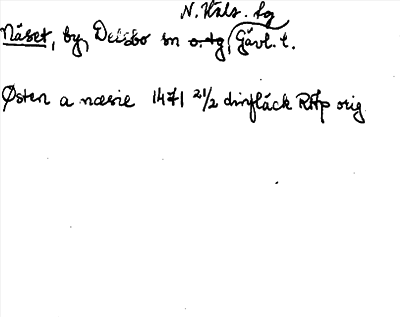 N. Häls. tg
Näset, by, Delsbo sn o. tg, Gävl. l.
Østen a næsie 1471 21/2 dinfläck RAp orig